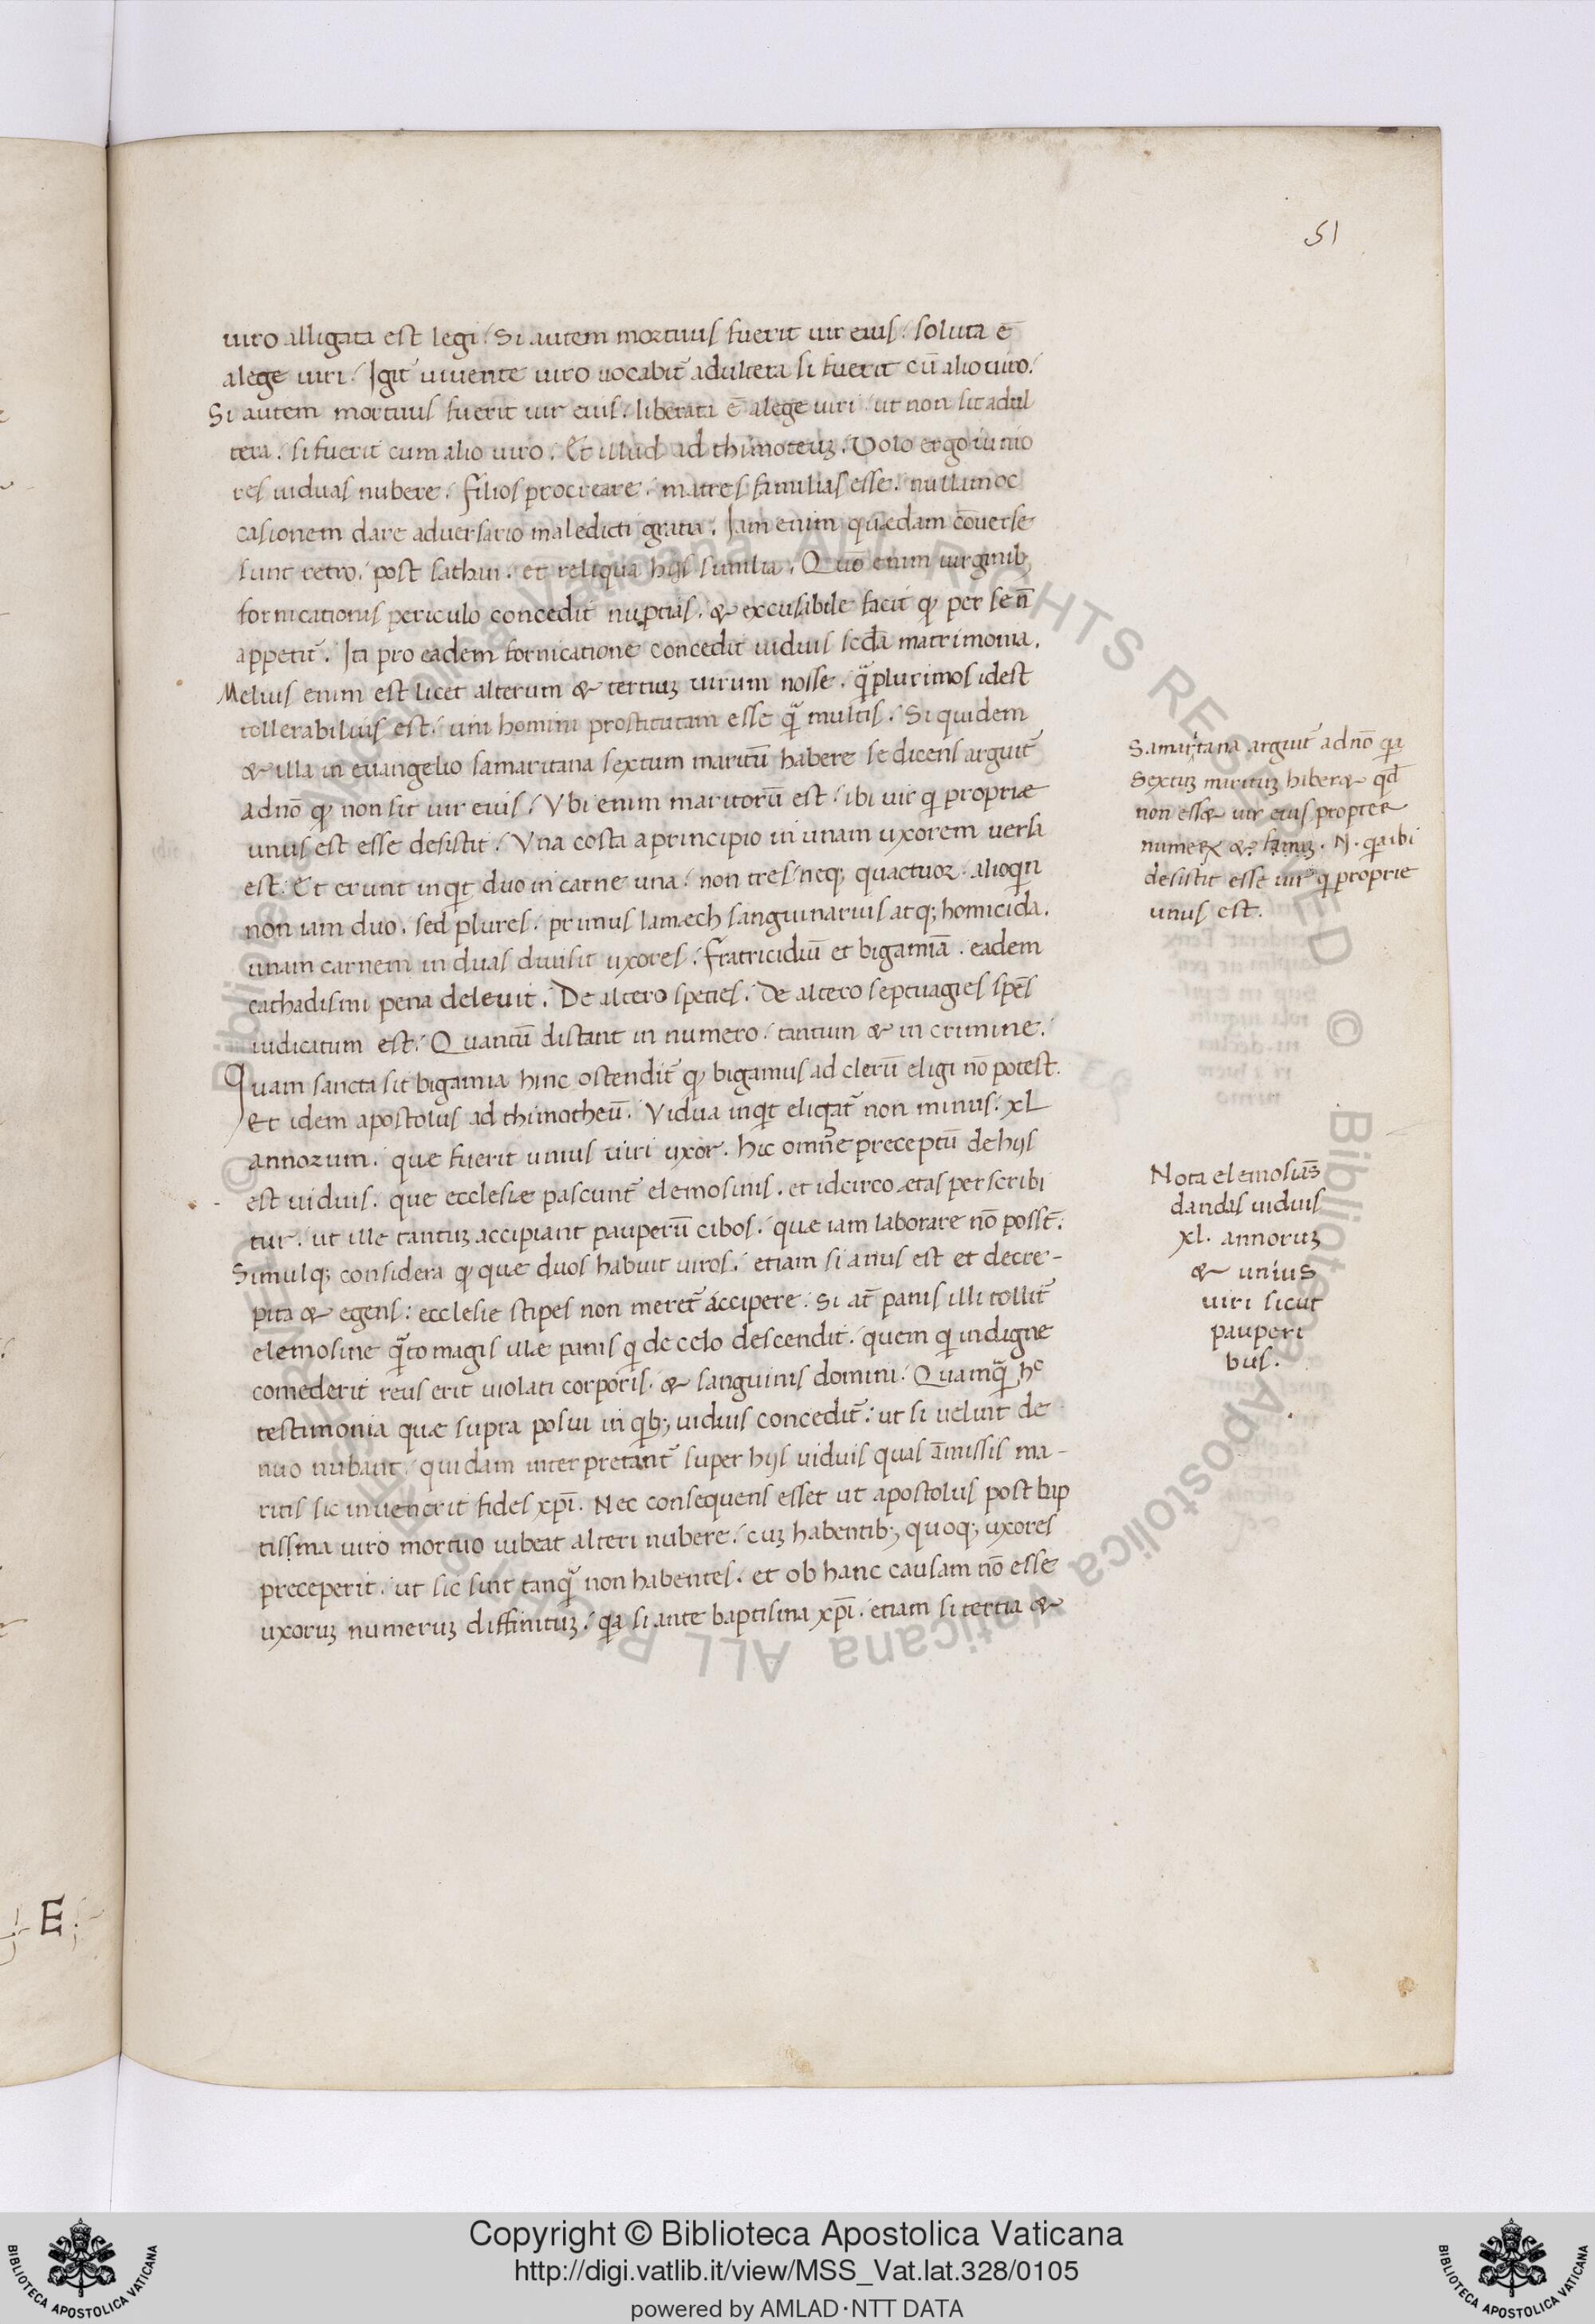 51
uiro alligata est legi. Si autem mortuus fuerit uir eius. soluta ē
alege uiri. Igit̄ uiuente uiro uocabit̄ adultera si fuerit cū alio uiro.
Si autem mortuus fuerit uir eius. liberata ē alege uiri. ut non sit adul
tera. si fuerit cum alio uiro. Et illud ad thimoteuꝫ. Volo ergo iunio
res uiduas nubere. filios procreare. matres familias esse. nullam oc
casionem dare aduersario maledicti gratia. Iam enim quædam cōuerse
sunt retro. post sathan. et reliqua hijs similia. Quō enim uirginib;
fornicationis periculo concedit nuptias. & excusabile facit qͥ per se n̄
appetit̄. Ita pro eadem fornicatione concedit uiduis scd̄a matrimonia.
Melius enim est licet alterum & tertiuꝫ uirum nosse. qͣ̄ plurimos idest
tollerabilius est. uni homini prostitutam esse qͣ̄ multis. Si quidem
& illa in euangelio samaritana sextum maritū habere se dicens arguit̄
adnō qͥ non sit uir eius. Vbi enim maritorū est. ibi uir qͥ propriæ
unus est esse desistit. Vna costa a principio in unam uxorem uersa
est. Et erunt inqͥt duo in carne una. non tres. neq; quactuor. alioqͥn
non iam duo. sed plures. primus lamæch sanguinarius atq; homicida.
unam carnem in duas diuisit uxores. fratricidiū et bigamiā. eadem
cathaclismi pena deleuit. De altero septies. de altero septuagies spēs
iudicatum est. Quantū distant in numero. tantum & in crimine.
Quam sancta sit bigamia hinc ostendit̄ qͥ bigamus ad clerū eligi nō potest.
Et idem apostolus ad thimotheū. Vidua inqͥt eligat̄ non minus. xL
annorum. quæ fuerit unius uiri uxor. hic omne preceptū de hijs
est uiduis. que ecclesiæ pascunt̄ elemosinis. et idcirco ætas perscribi
tur. ut ille tantuꝫ accipiant pauperū cibos. quæ iam laborare nō possē.
Simulq; considera qͥ quæ duos habuit uiros. etiam si anus est et decre-
pita & egens: ecclesie stipes non meret̄ accipere. Si at̄ panis illi tollit̄
elemosine qͣ̄to magis ille panis qͥ de celo descendit. quem qͥ indigne
comederit reus erit uiolati corporis. & sanguinis domini. Quamqͣ̄ hᶜ
testimonia quæ supra posui in qͥb; uiduis concedit̄: ut si uelint de
nuo nubant. quidam interpretant̄ super hijs uiduis quas amissis ma-
ritis sic inuenerit fides xp̄i. Nec consequens esset ut apostolus post bap
tissma uiro mortuo iubeat alteri nubere. cuꝫ habentib; quoq; uxores
preceperit. ut sic sint tanqͣ̄ non habentes. et ob hanc causam nō esse
uxoruꝫ numeruꝫ diffinituꝫ. qͥa si ante baptisma xp̄i. etiam si tertia &
Samaritana arguit̄ adnō qͥa
Sextuꝫ marituꝫ haberæ qd̄
non essæ uir eius propter
desistit esse uir qͥ proprie
unus est.
Nota elemosiās
dandas uiduis
xl. annoruꝫ
& unius
uiri sicut
pauperi
bus.
E
Copyright © Biblioteca Apostolica Vaticana
http://digi.vatlib.it/view/MSS_Vat.lat.328/0105
powered by AMLAD·NTT DATA
BIBLIOTECA APOSTOLICA VATICANA
BIBLIOTECA APOSTOLICA VATICANA
© Biblioteca Apostolica Vaticana ALL RIGHTS RESERVED